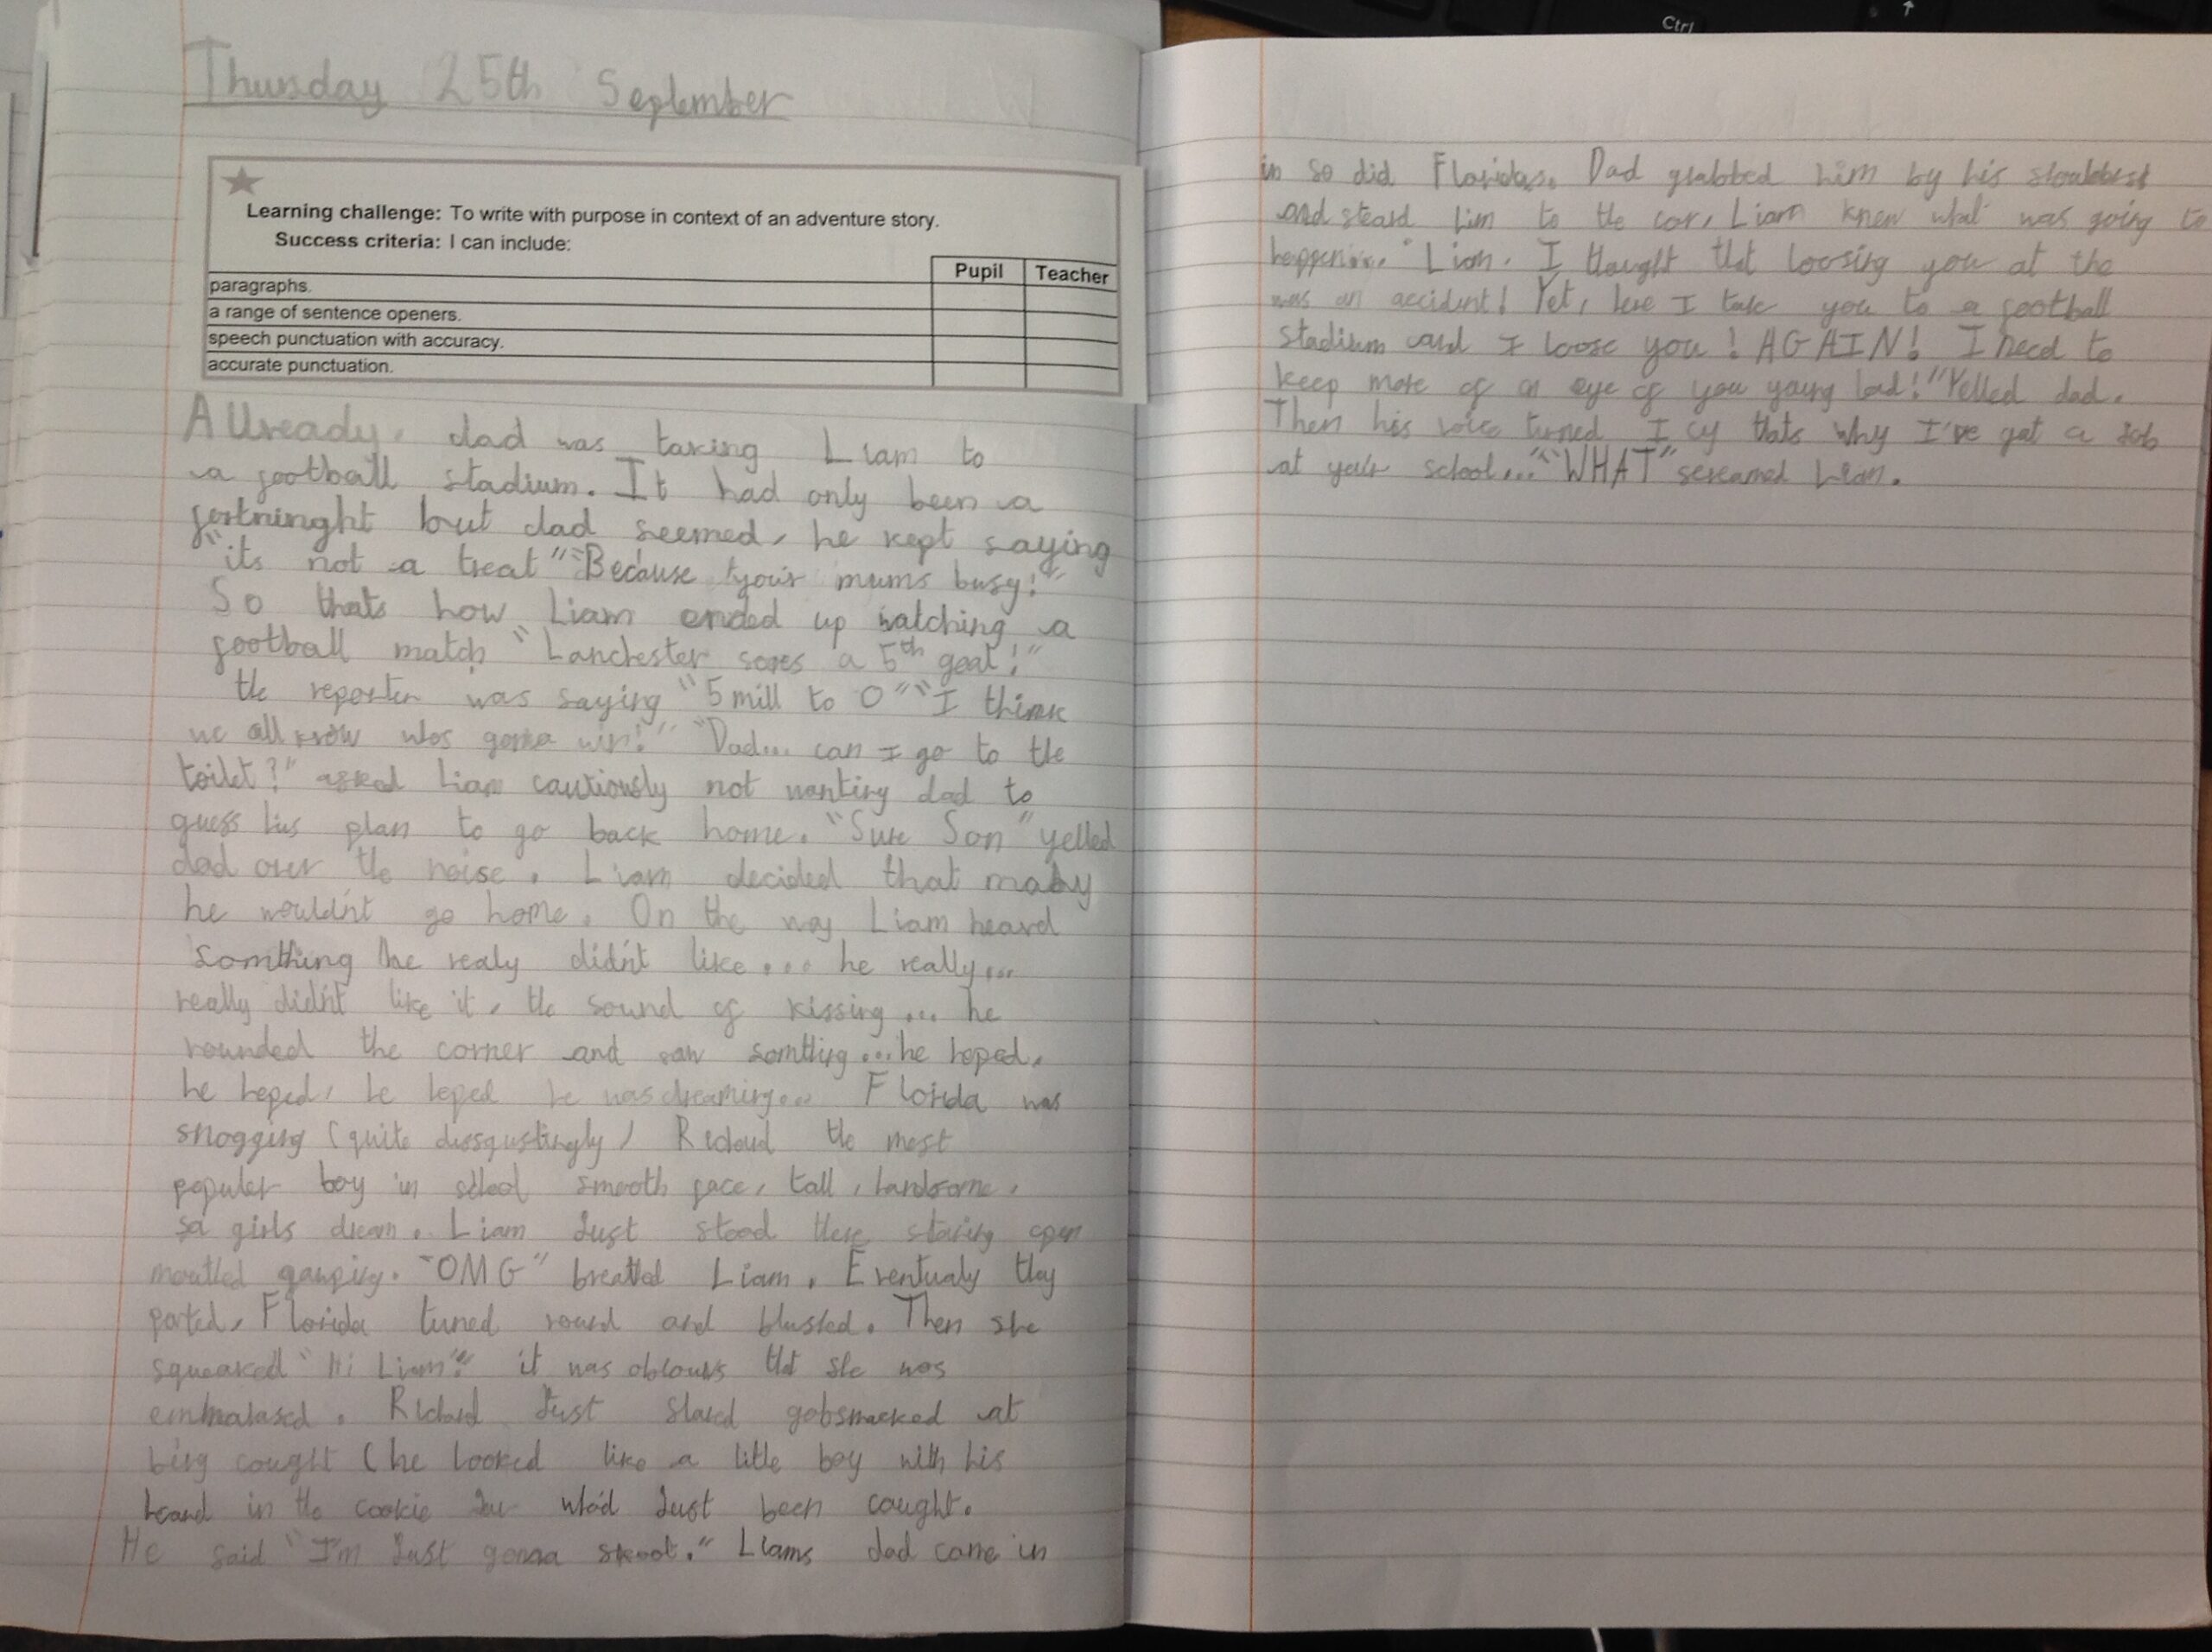 Thursday 25th September
Learning challenge: To write with purpose in context of an adventure story.
Success criteria: I can include:
Pupil Teacher
paragraphs.
a range of sentence openers.
speech punctuation with accuracy.
accurate punctuation.
Allready, dad was taking Liam to
a football stadium. It had only been a
fortninght but dad seemed, he kept saying
"its not a treat" "Because your mums busy!"
So thats how Liam ended up watching a
football match "Lanchester scores a 5th goal!"
the reporter was saying "5 mill to 0" "I think
we all know whos gonna win!" "Dad... can I go to the
toilet?" asked Liam cautiously not wanting dad to
guess his plan to go back home. "Sure Son" yelled
dad over the noise. Liam decided that
he wouldn't go home. On the way Liam heard
somthing he realy didn't like... he really...
really didn't like it, the sound of kissing... he
rounded the corner and saw somthing... he hoped,
he hoped, he hoped he was dreaming... Florida was
snogging (quite dissgustingly) Richard the most
populer boy in school smooth face, tall, handsome,
girls dream. Liam Just stood there staring open
mouthed gawping. "OMG" breathed Liam. Eventualy they
parted, Florida turned round and blushed. Then she
squeaked "Hi Liam" it was that she was
Richard Just gobsmacked at
being cought (he looked like a little boy with his
heand in the cookie Jar who'd Just been caught.
He said "I'm Just gonna skoot." Liams dad came in
in so did Floridas. Dad grabbed him by his
and steard him to the car, Liam knew what was going to
happen... "Liam. I thought that loosing you at the
was an accident! Yet, here I take you to a football
stadium and I loose you! AGAIN! I need to
keep more of an eye of you young lad!" Yelled dad.
Then his voice turned thats why I've got a Job
at your school..." "WHAT" screamed Liam.
Ctrl
↑